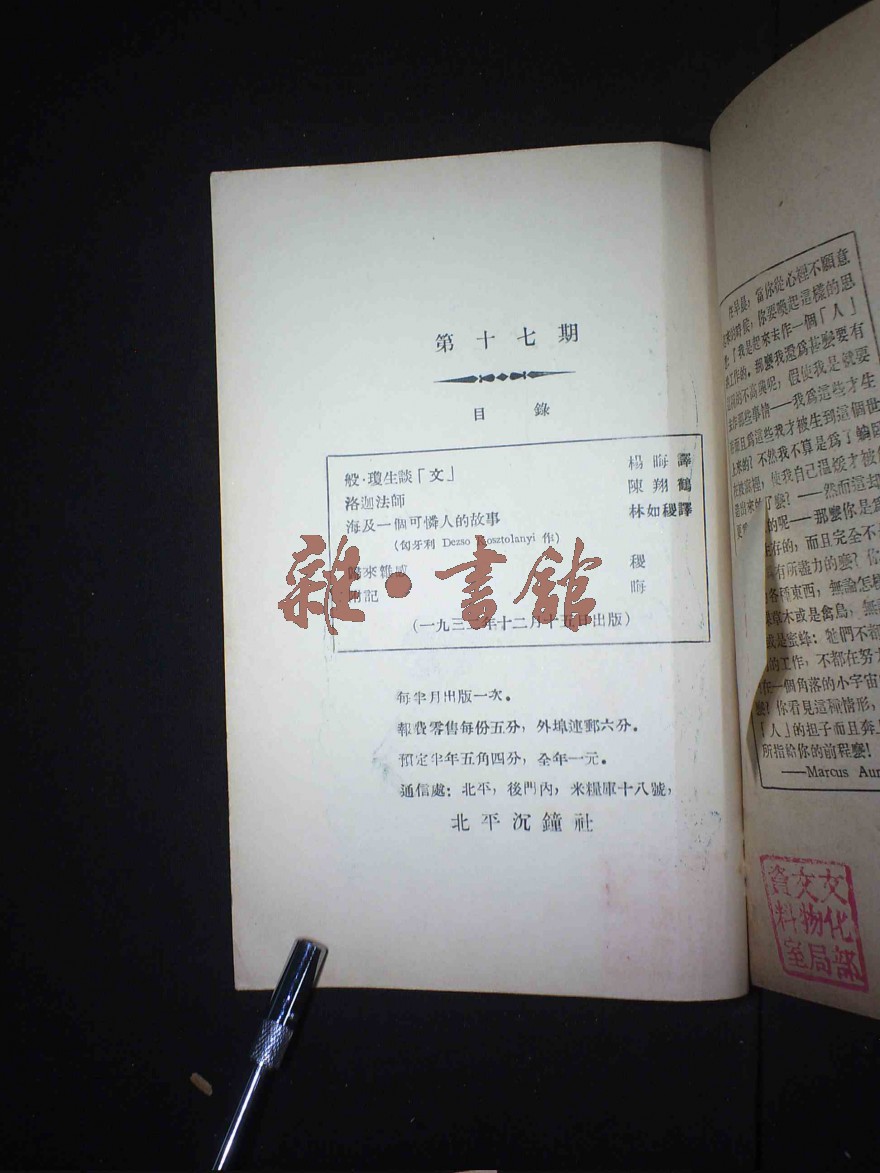 第十七期
目錄
般·瓊生談「文」 楊晦譯
洛迦法師 陳翔鶴
海及一個可憐人的故事 林如稷譯
(匈牙利 Dezso Kosztolanyi 作)
歸來雜感 稷
附記 晦
(一九三二年十二月十五日出版)
每半月出版一次。
報費零售每份五分,外埠連郵六分。
預定半年五角四分,全年一元。
通信處:北平,後門內,米糧庫十八號,
北平沉鐘社
雜·書館
在早晨,當你從心裡不願意
的時候,你要喚起這樣的思
「我是起來去作一個「人」
工作的。那麼我還爲甚麼要有
不高興呢,假使我是就要
去作那些事情——我爲這些才生
而且爲這些我才被生到這個世
上來的?不然我不算是爲了
被裡,使我自己溫煖才被
造出來的了麼?——然而這却
的呢——那麼你是爲
生存的,而且完全不
有所盡力的麼?你
各種東西,無論怎樣
草木或是禽鳥,無
或是蜜蜂:牠們不都
的工作,不都在努力
在一個角落的小宇宙
麼?你看見這種情形,
「人」的担子而且奔上
所指給你的前程麼!
——Marcus Aur
文化部
文物局
資料室